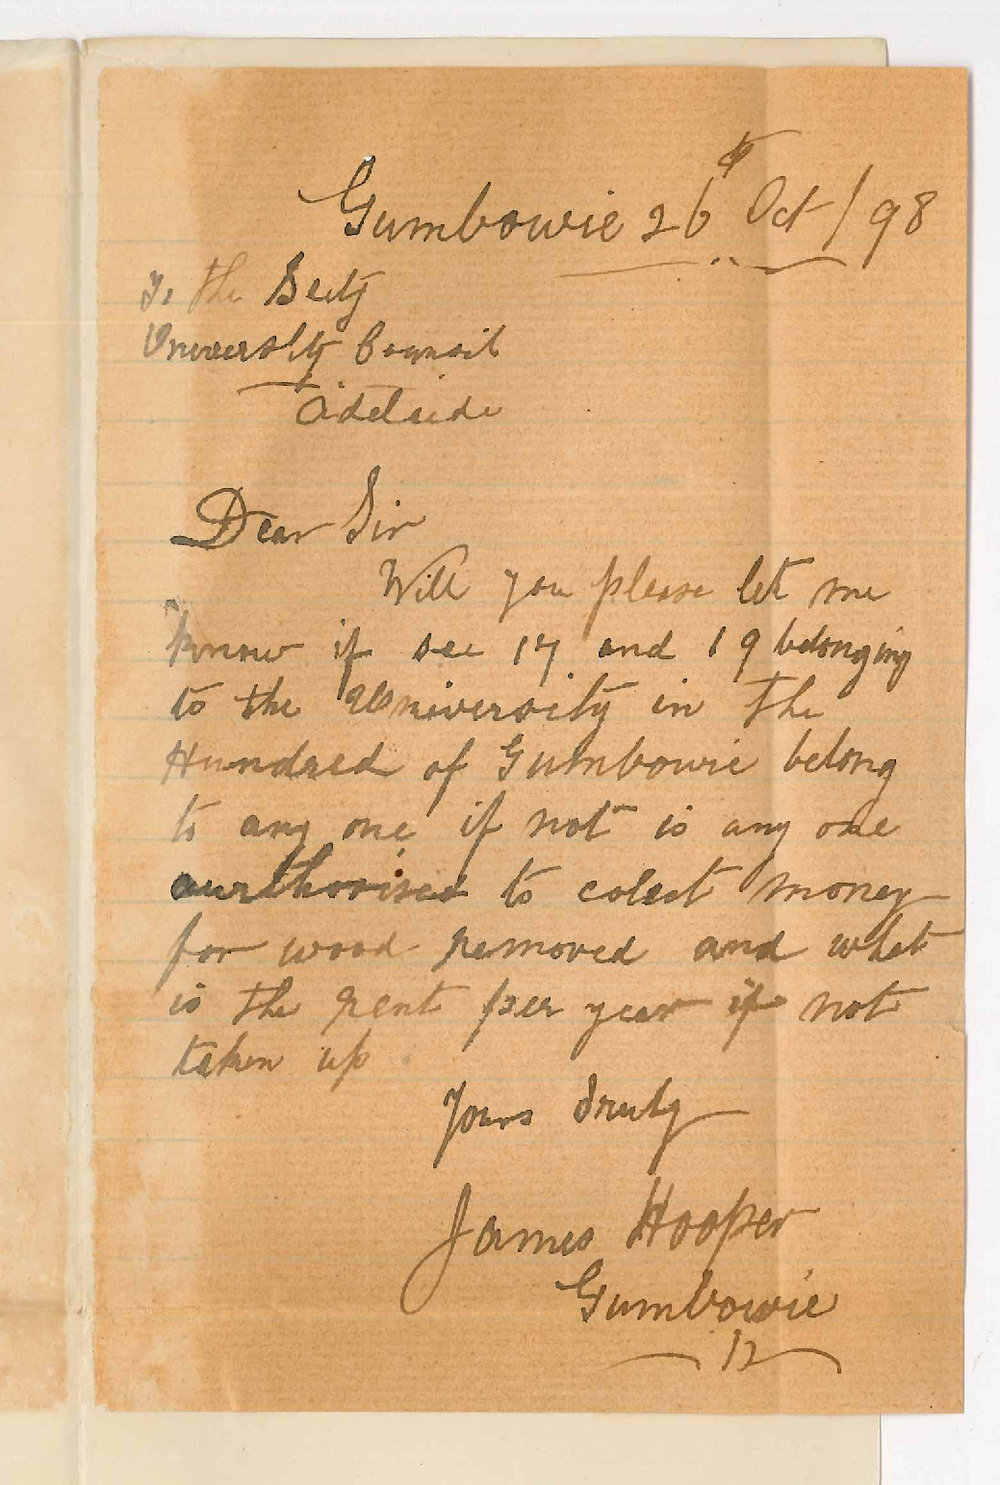 Gumbowie 26th Oct/98
To the Secty
University Council
Adelaide
Dear Sir
Will you please let me
know if sec 17 and 19 belonging
to the University in the
Hundred of Gumbowie belong
to any one if not is any one
aurthorised to colect money
for wood removed and what
is the rent per year if not
taken up
Yours Truly
James Hooper
Gumbowie